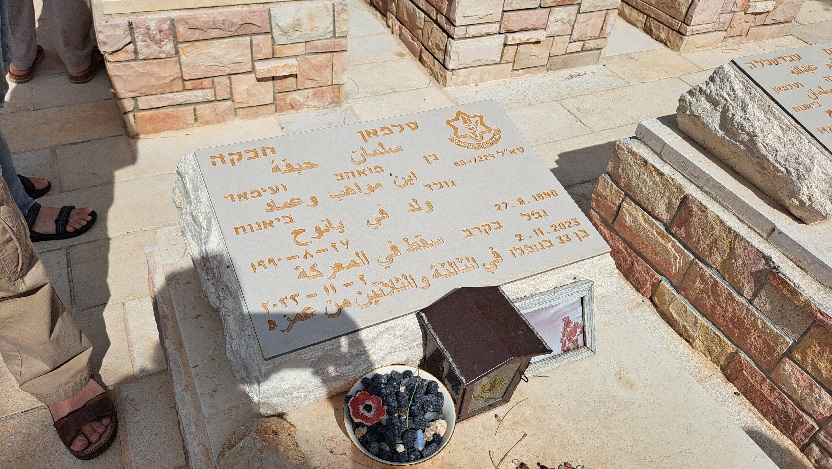 סלמאן חבקה
סא"ל
سلمان حبقة
בן מואהב ועימאד
ابن مواهب وعماد
נולד ביאנוח 27.8.1990
ولد في يانوح ٢٧-٨-١٩٩٠
נפל בקרב 2.11.2023
سقط في المعركة ٢-١١-٢٠٢٣
בן 33 בנופלו
في الثالثة والثلاثين من عمره